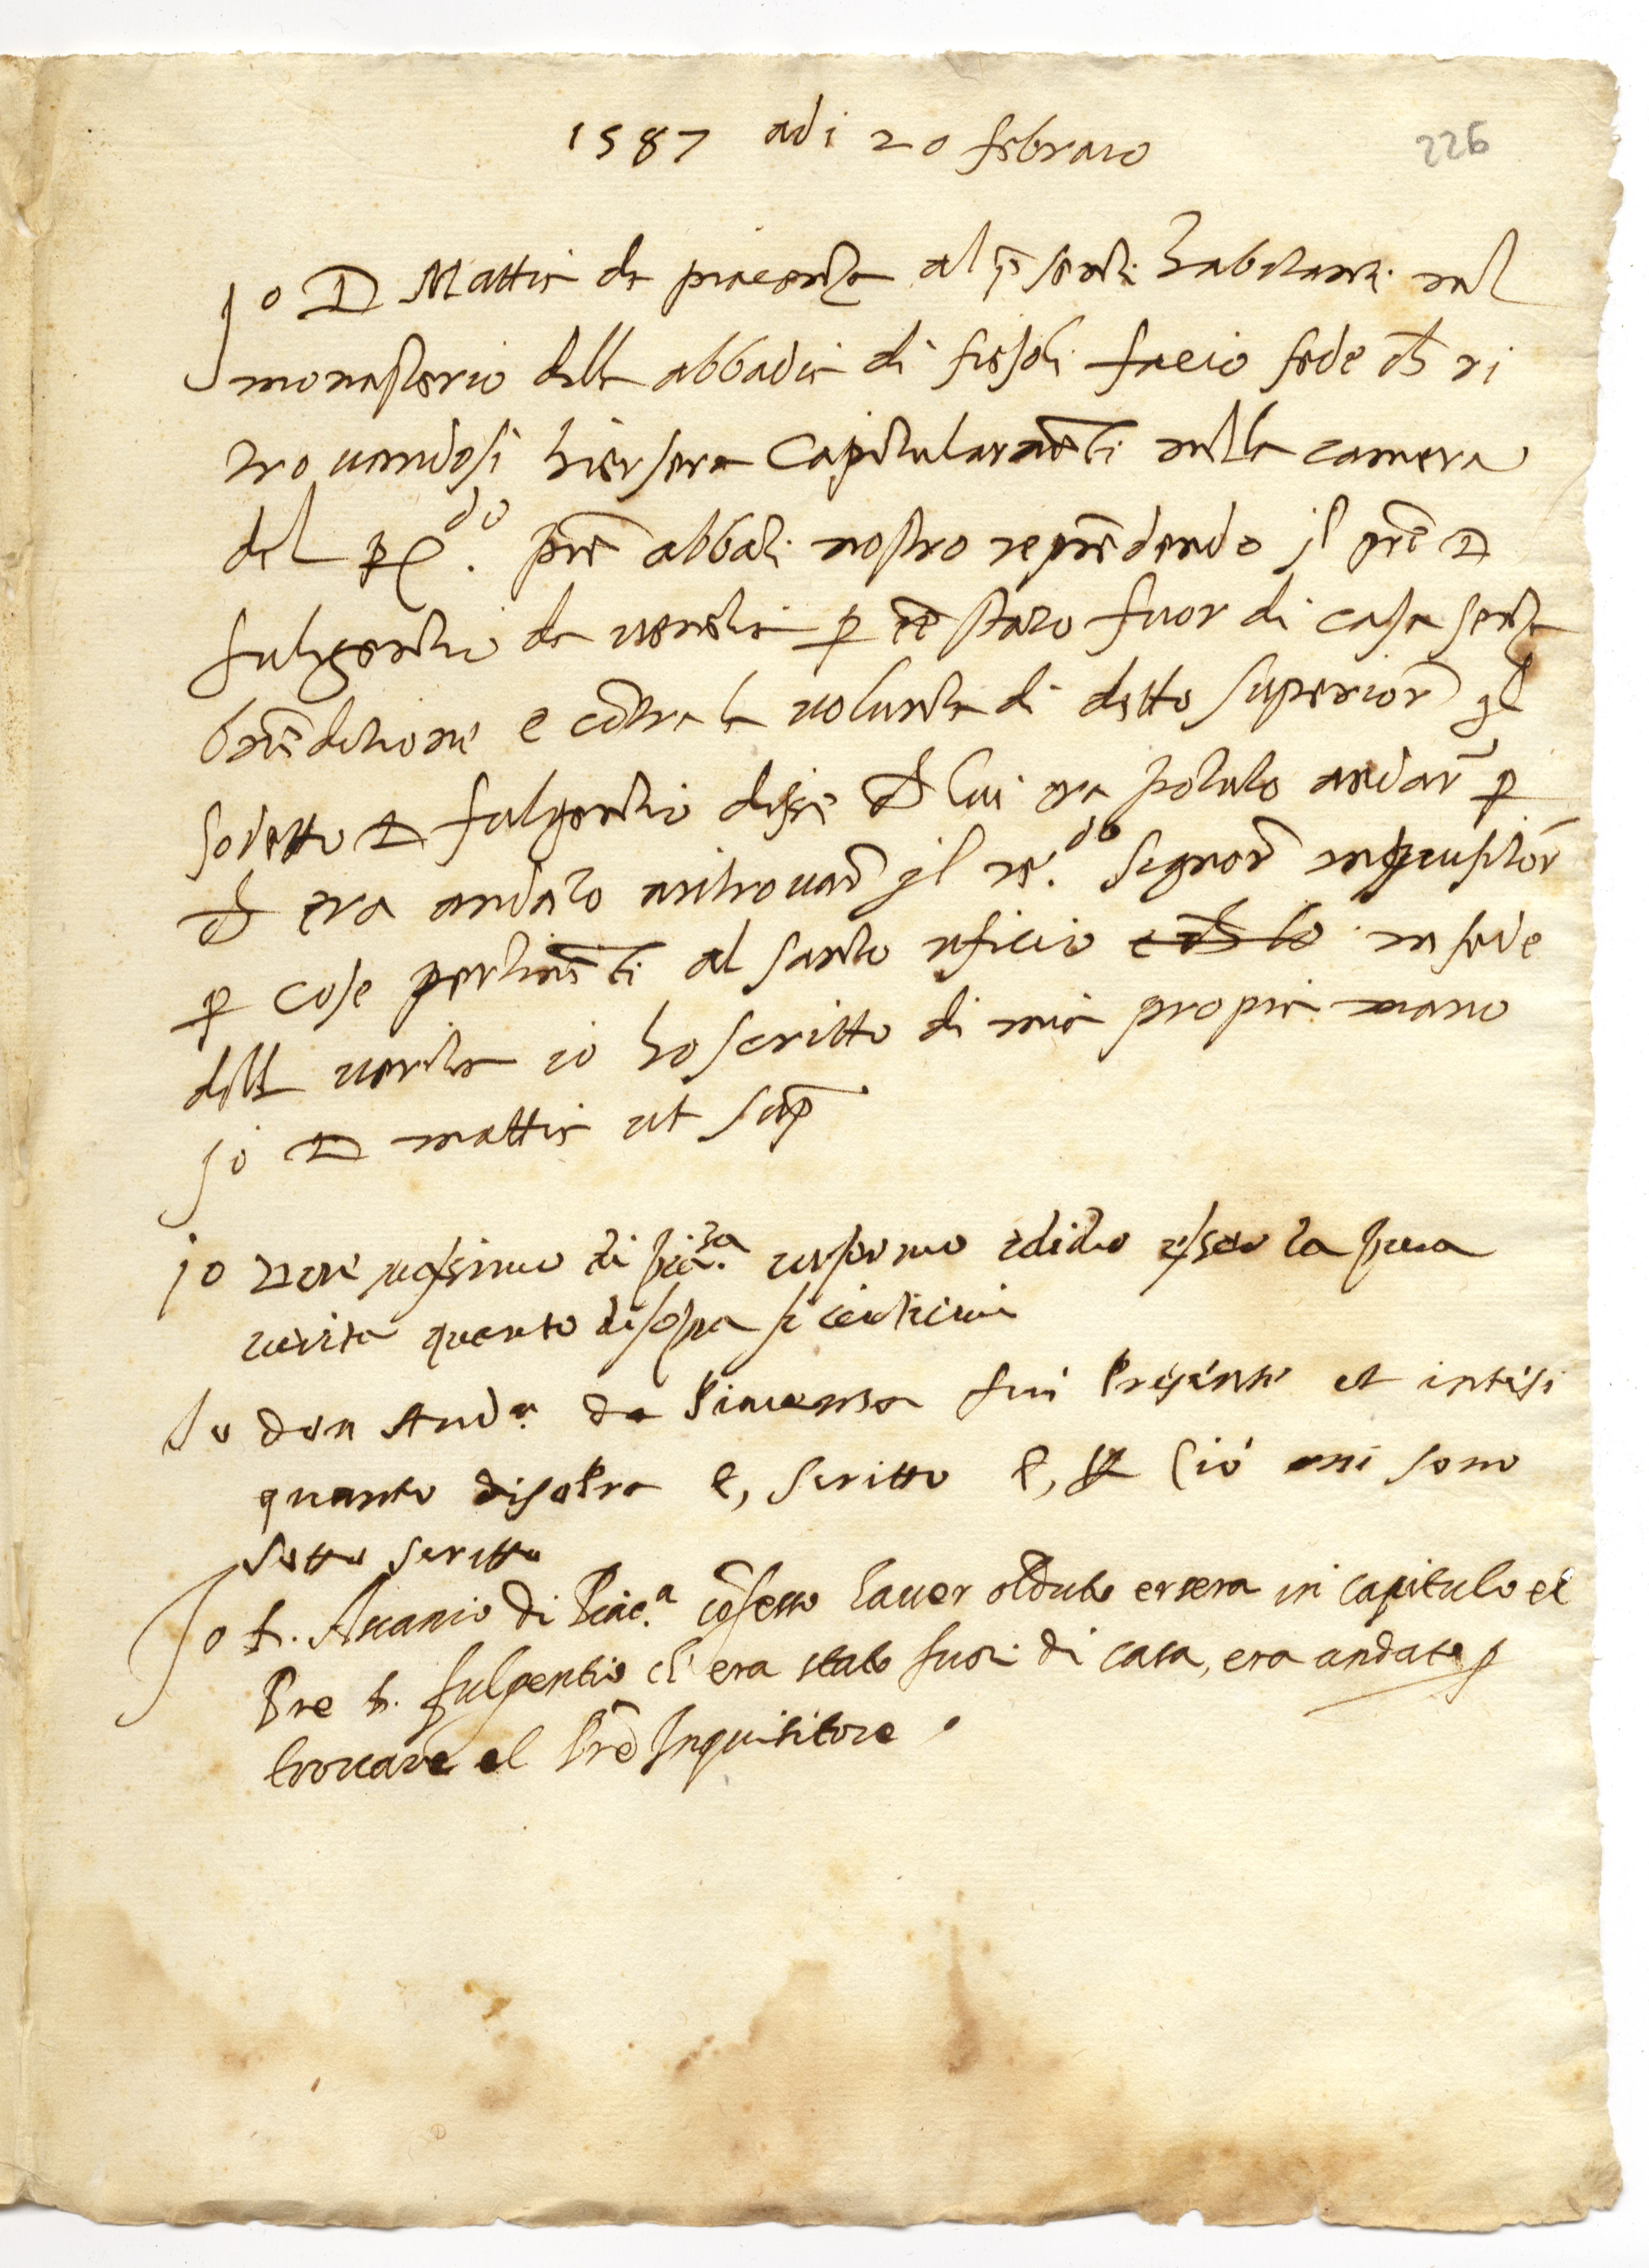 1587 adi 20 febraio
226
Jo D Mattia da piacenza al p̄senti habitante nel
monasterio della abbadia di fiesoli facio fede ch̄ ri
trovandosi hiersera Capitularmēti nella camera
del R.do prē abbati nostro reprēdendo jl prē D
fulgentio da venetia ꝑ eē stato fuor di casa senza
beneditione e cōtra la volunta di detto superior̄ jl
sodetto D fulgentio disse ch̄ lui era potuto andar̄ ꝑ
ch̄ era andato aritrovar̄ jl re.do signor̄ inquisitor̄
ꝑ cose pertinēti al santo uficio in fede
della verita io ho scritto di mia propia mano
jo D mattia ut sup̄
jo Don di pia.za confermo esser la pura
verita quanto di sopra si
Io don And.a da Piacenza fui Presente et intesi
quanto disopra e, scritto e, ꝑ ciò mi sono
sotto scritto
Jo D. Ascanio di Piac.a cōfesso haver olduto ersera in capitulo el
Pre D. fulgentio ch' era stato fuori di casa, era andato ꝑ
trovare el Prē Inquisitore .